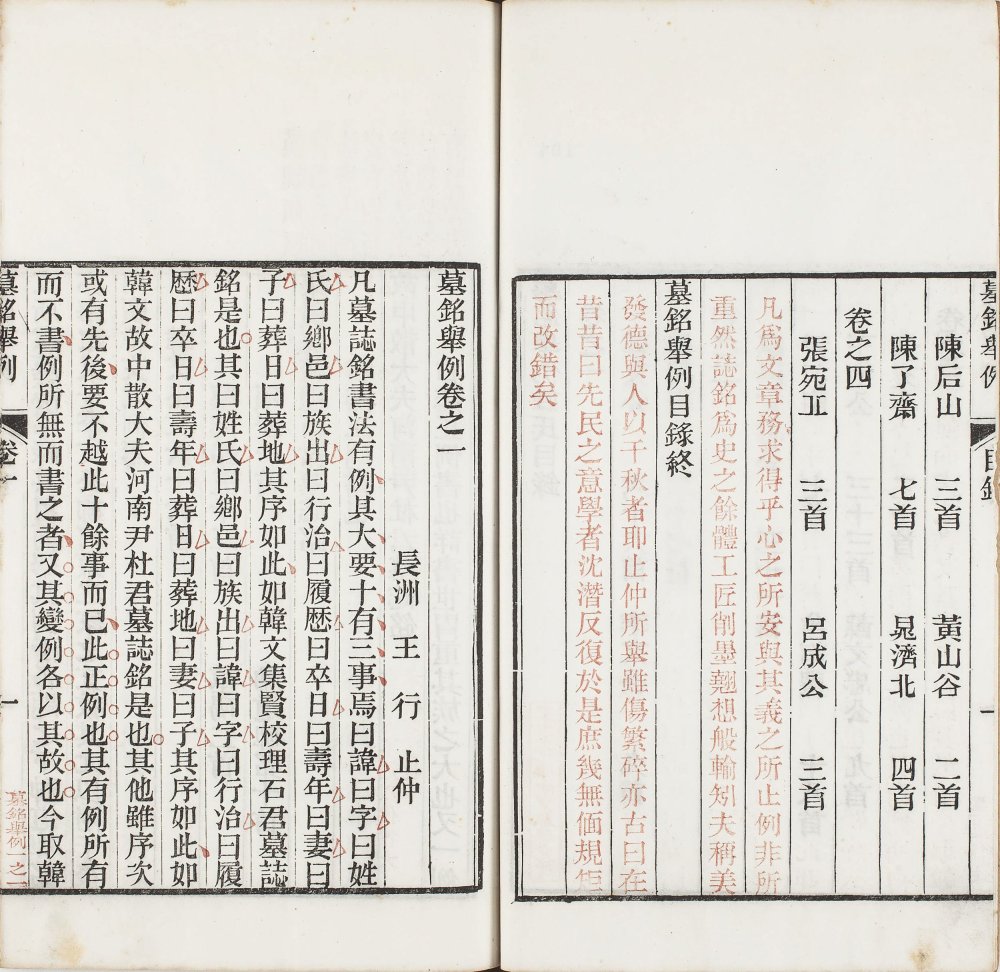 墓銘舉例　目錄　一
陳后山　三首　黃山谷　二首
陳了齋　七首　晁濟北　四首
卷之四
張宛丘　三首　呂成公　三首
凡爲文章務求得乎心之所安與其義之所止例非所
重然誌銘爲史之餘體工匠削墨翹想般輸矧夫稱美
墓銘舉例目錄終
發德與人以千秋者耶止仲所舉雖傷繁碎亦古曰在
昔昔曰先民之意學者沈潛反復於是庶幾無偭規矩
而改錯矣
墓銘舉例卷之一
長洲　王　行　止仲
凡墓誌銘書法有例其大要十有三事焉曰諱曰字曰姓
氏曰鄉邑曰族出曰行治曰履歷曰卒日曰壽年曰妻曰
子曰葬日曰葬地其序如此如韓文集賢校理石君墓誌
銘是也其曰姓氏曰鄉邑曰族出曰諱曰字曰行治曰履
歷曰卒日曰壽年曰葬日曰葬地曰妻曰子其序如此如
韓文故中散大夫河南尹杜君墓誌銘是也其他雖序次
或有先後要不越此十餘事而已此正例也其有例所有
而不書例所無而書之者又其變例各以其故也今取韓
墓銘舉例　卷一　一
墓銘舉例一之一